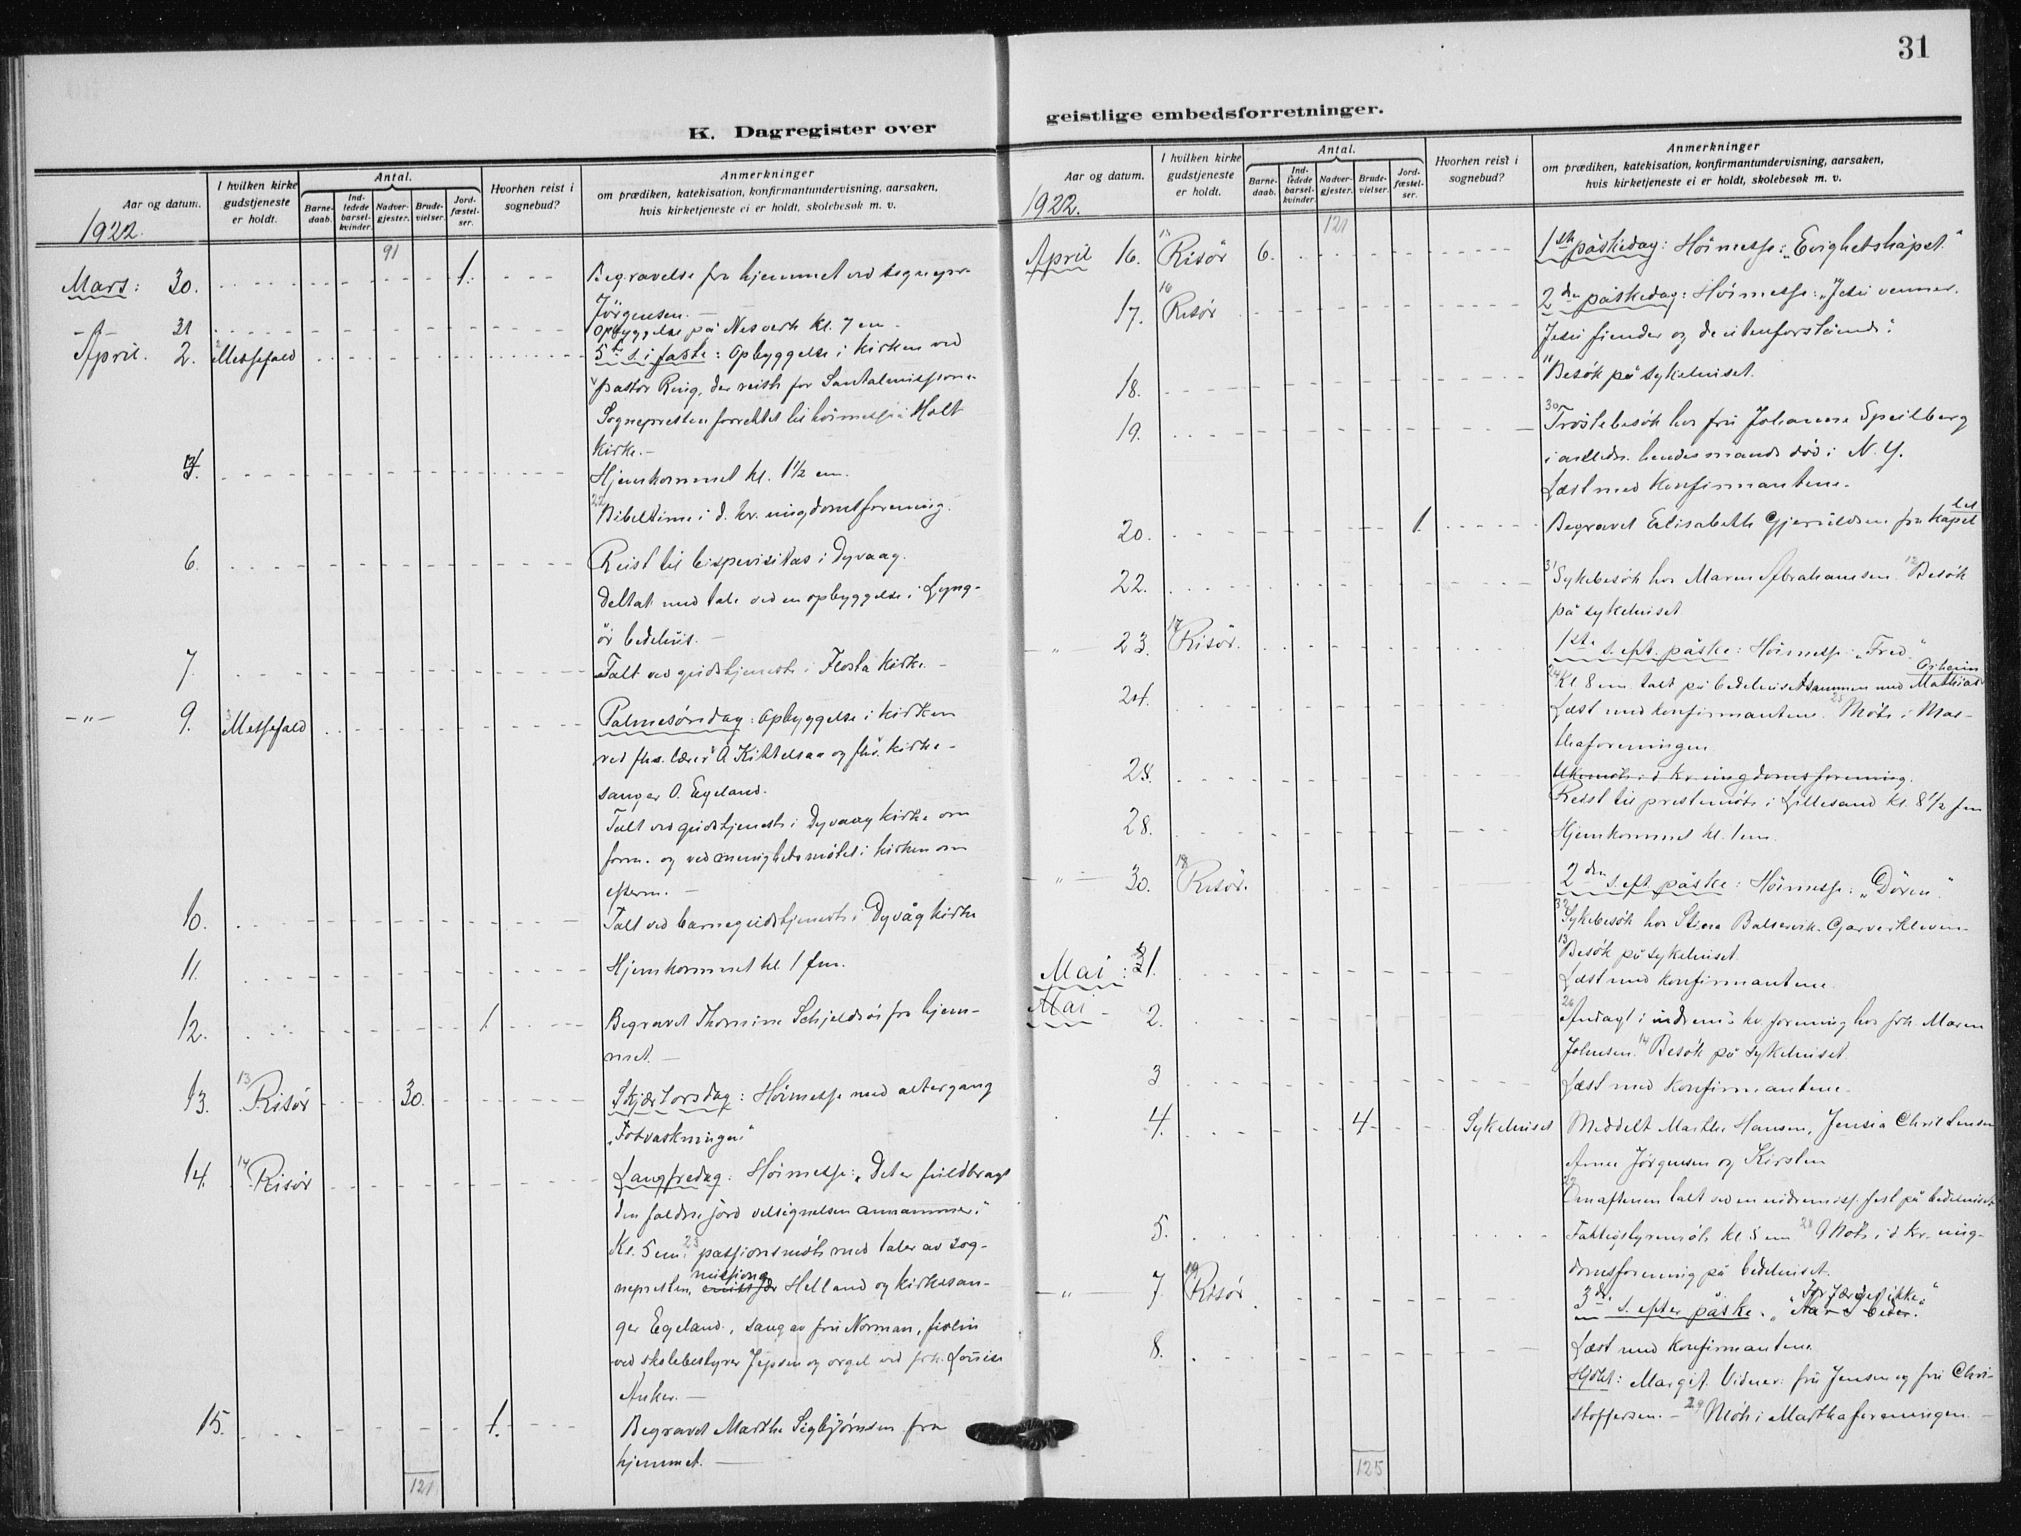 31
K. Dagregister over
geistlige embedsforretninger.
Aar og datum.
I hvilken kirke gudstjeneste er holdt.
Antal.
Barnedaab.
Indledede barselkvinder.
Nadvergjester.
Brudevielser.
Jordfæstelser.
Hvorhen reist i sognebud?
Anmerkninger
om prædiken, katekisation, konfirmantundervisning, aarsaken,
hvis kirketjeneste ei er holdt, skolebesøk m. v.
1922.
91
Mars: 30. 1. Begravelse fra hjemmet ved sognepr.
Jörgensen. —
31 Opbyggelse på Nesverk kl. 7 em.
April. 2. Messefald 5te s. i faste: Opbyggelse i kirken ved
pastor Ring, der reiste for Santalmissionen
Sognepresten forrettet til höimesse i Holt
kirke. —
Hjemkommet kl. 1½ em.
22 Bibeltime i d. kr. ungdomsforening.
6. Reist til bispevisitas i Dyvaag.
Deltat med tale ved en opbyggelse i Lyng-
ör bedehus. —
7. Talt ved gudstjeneste i Flosta kirke. —
—"— 9. 3 Messefald Palmesöndag: Opbyggelse i kirken
ved fhv. lærer A Kittelsaa og fhv. kirke-
sanger O. Egeland.
Talt ved gudstjeneste i Dyvaag kirke om
form. og ved menighetsmötet i kirken om
efterm. —
10. Talt ved barnegudstjeneste i Dyvåg kirke
11. Hjemkommet kl 1 fm.
12. 1 Begravet Thomine Schjeldsöi fra hjem-
met. —
13. 13 Risör 30. Skjærtorsdag: Höimesse med altergang
"Fotvaskningen"
14. 14 Risör Langfredag: Höimesse: "Det er fuldbragt
den faldne jord velsignelsen annammer."
Kl. 5 em. 23 passionsmöte med taler av sog-
nepresten, missions Helland og kirkesan-
ger Egeland, sang av fru Norman, fiolin
ved skolebestyrer Jepsen og orgel ved frk. Louise
Anker. —
15. 1. Begravet Marthe Sigbjörnsen fra
hjemmet. —
121
Aar og datum.
I hvilken kirke gudstjeneste er holdt.
Antal.
Barnedaab.
Indledede barselkvinder.
Nadvergjester.
Brudevielser.
Jordfæstelser.
Hvorhen reist i sognebud?
Anmerkninger
om prædiken, katekisation, konfirmantundervisning, aarsaken,
hvis kirketjeneste ei er holdt, skolebesøk m. v.
1922.
121
April 16. 15 Risör 6. 1ste påskedag: Höimesse: "Evighetshåpet."
17. 16 Risör 2den påskedag: Höimesse: "Jesu venner,
Jesu fiender og de utenforstående."
18. 11 Besök på sykehuset.
19. 30 Tröstebesök hos fru Johanne Speilberg
i anledn. hendes mands död i N. Y.
Læst med konfirmantene.
20. 1. Begravet Elisabeth Gjeruldsen fra kapel
let
22. 31 Sykebesök hos Maren Abrahamsen. 12 Besök
på sykehuset
—"— 23. 17 Risör. 1ste s. eft. påske: Höimesse: "Fred."
24 Kl 8 em talt på bedehuset sammen med Mathias
Orheim
24. Læst med konfirmantene. 25 Möte i Mar-
thaforeningen
25. Ukemöte i d. kr. ungdomsforening.
Reist til prestemöte i Lillesand kl. 8½ fm
28. Hjemkommet kl. 1 em.
—"— 30. 18 Risör. 2den s. eft. påske: Höimesse: "Dören."
32 Sykebesök hos Stina Balsvik. Garverkleven.
13 Besök på sykehuset.
Mai: 1. Læst med konfirmantene.
Mai 2. 26 Andagt i indremis. kv. forening hos frk. Maren
Johnsen. 14 Besök på sykehuset.
3 Læst med konfirmantene.
4. 4 Sykehuset Meddelt Marthe Hansen, Jensia Christensen
Anne Jörgensen og Kirsten
27 Om aftenen talt ved en indremiss. fest på bedehuset
5. Fattigstyremöte kl 5 em 28 Möte i d. kr. ung-
domsforening på bedehuset.
—"— 7. 19 Risör. 3die s. efter påske. "Når I beder."
"Forfærdes ikke"
8. Læst med konfirmantene.
Hjolet: Margit. Vidner: fru Jensen og fru Chri-
stoffersen. — 29 Möte i Marthaforeningen. —
125